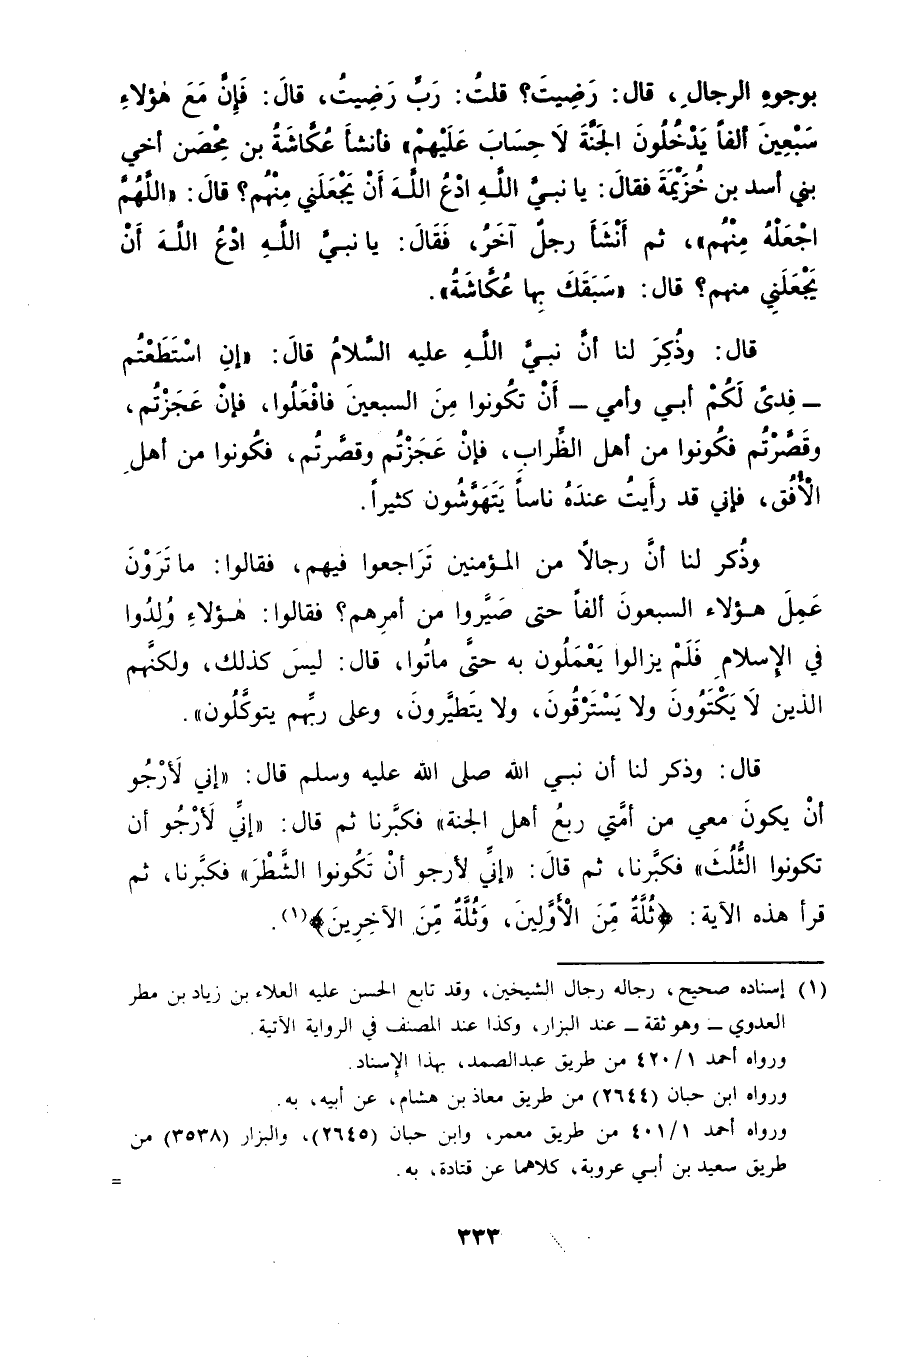 بوجوهِ الرجالِ، قال: رَضِيتَ؟ قلتُ: رَبِّ رَضِيتُ، قالَ: فَإِنَّ مَعَ هٰؤلاءِ
سَبْعِينَ ألفاً يَدْخُلُونَ الجَنَّةَ لَا حِسَابَ عَلَيْهِمْ» فأنشأَ عُكَّاشَةُ بن مِحْصَن أخي
بني أسد بن خُزَيْمَةَ فقالَ: يا نبيَّ اللَّهِ ادْعُ اللَّهَ أَنْ يَجْعَلَني مِنْهُم؟ قالَ: «اللَّهُمَّ
اجْعَلْهُ مِنْهُم»، ثم أَنْشَأَ رجلٌ آخَرُ، فَقَالَ: يا نبيَّ اللَّهِ ادْعُ اللَّهَ أَنْ
يَجْعَلَنِي منهم؟ قال: «سَبَقَكَ بِها عُكَّاشَةُ».
قال: وذُكِرَ لنا أنَّ نبيَّ اللَّهِ عليه السَّلامُ قالَ: «إنِ اسْتَطَعْتُم
ــ فِدىً لَكُمْ أبي وأمي ــ أَنْ تكُونوا مِنَ السبعينَ فافْعَلُوا، فإنْ عَجَزْتُم،
وقَصَّرْتُم فكُونوا من أهل الظِّرابِ، فإنْ عَجَزْتُم وقصَّرتُم، فكُونوا من أهلِ
الْأُفُق، فإني قد رأَيتُ عندَهُ ناساً يَتَهَوَّشُون كثيراً.
وذُكر لنا أنَّ رجالاً من المؤمنين تَرَاجعوا فيهم، فقالوا: ما تَرَوْنَ
عَمِلَ هؤلاء السبعونَ ألفاً حتى صَيَّروا من أمرِهم؟ فقالوا: هٰؤلاءِ وُلِدُوا
في الإِسلامِ فَلَمْ يزالوا يَعْمَلُون به حتَّى ماتُوا، قال: ليسَ كذلك، ولكنَّهم
الذين لَا يَكْتَوُونَ ولا يَسْتَرْقُونَ، ولا يتَطيَّرونَ، وعلى ربِّهم يتوكَّلُون».
قال: وذكر لنا أن نبي الله صلى الله عليه وسلم قال: «إني لَأرْجُو
أنْ يكونَ معي من أمَّتي ربعُ أهل الجنة» فكبَّرنا ثم قال: «إنِّي لَأرْجُو أن
تكونوا الثُّلُثَ» فكبَّرنا، ثم قالَ: «إنِّي لأرجو أنْ تَكُونوا الشَّطْرَ» فكبَّرنا، ثم
قرأ هذه الآية: ﴿ثُلَّةٌ مِّنَ الْأَوَّلِينَ، وَثُلَّةٌ مِّنَ الآخِرِينَ﴾(١).
(١) إسناده صحيح، رجاله رجال الشيخين، وقد تابع الحسن عليه العلاء بن زياد بن مطر
العدوي ــ وهو ثقة ــ عند البزار، وكذا عند المصنف في الرواية الآتية.
ورواه أحمد ٤٢٠/١ من طريق عبدالصمد، بهذا الإِسناد.
ورواه ابن حبان (٢٦٤٤) من طريق معاذ بن هشام، عن أبيه، به.
ورواه أحمد ٤٠١/١ من طريق معمر، وابن حبان (٢٦٤٥)، والبزار (٣٥٣٨) من
طريق سعيد بن أبي عروبة، كلاهما عن قتادة، به.
=
٣٣٣